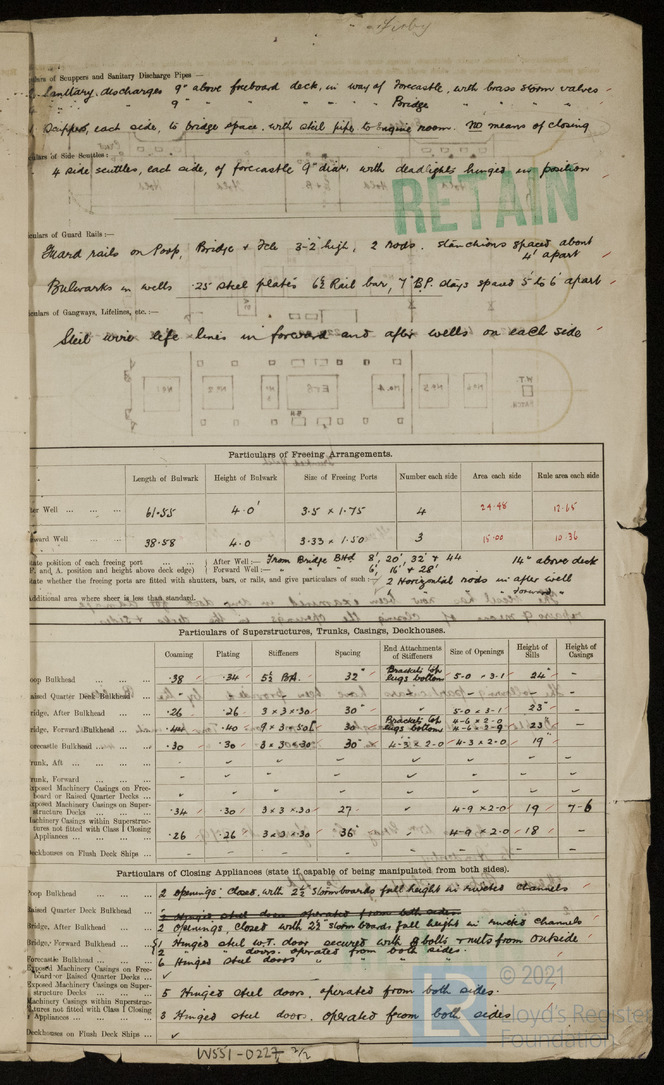 ulars of Scuppers and Sanitary Discharge Pipes —
2 Sanitary discharges 9" above freeboard deck, in way of Forecastle, with brass storm valves
" " 9" " " " " Bridge " " "
Scupper, each side, to bridge space, with steel pipe to Engine room. No means of closing
ulars of Side Scuttles:
4 side scuttles, each side, of forecastle 9" diar. with deadlights hinged in position
RETAIN
iculars of Guard Rails:—
Guard rails on Poop, Bridge & Fcle 3-2 high, 2 rods. Stanchions spaced about
4' apart
Bulwarks in wells .25 steel plates 6½ Rail bar, 7" B.P. stays spaced 5 to 6' apart
iculars of Gangways, Lifelines, etc.:—
Steel wire life lines in forward and after wells on each side
Particulars of Freeing Arrangements.
Length of Bulwark Height of Bulwark Size of Freeing Ports Number each side Area each side Rule area each side
ter Well 61.55 4.0' 3.5 x 1.75 4 24.48 12.65
rward Well 38.58 4.0 3.33 x 1.50 3 15.00 10.36
tate position of each freeing port After Well:— From Bridge BHd 8', 20', 32' & 44 14" above deck
F. and A. position and height above deck edge) Forward Well:— " " 6', 16' & 28'
tate whether the freeing ports are fitted with shutters, bars, or rails, and give particulars of such:— 2 Horizontal rods in after well
" " " forward "
Additional area where sheer is less than standard.
Particulars of Superstructures, Trunks, Casings, Deckhouses.
Coaming Plating Stiffeners Spacing End Attachments of Stiffeners Size of Openings Height of Sills Height of Casings
oop Bulkhead .38 .34 5½ B.A. 32" Brackets top lugs bottom 5-0 x 3-1 24" –
aised Quarter Deck Bulkhead – – – – – – – –
ridge, After Bulkhead .26 .26 3 x 3 x .30 30" " 5-0 x 3-1 23" –
ridge, Forward Bulkhead .44 .40 9 x 3 x .50 [ 30 Brackets top lugs bottom 4-6 x 2-0 4-6 x 2-9 23" –
orecastle Bulkhead .30 .30 3 x 3 x .30 30" 4-3 x 2-0 4-3 x 2-0 19" –
runk, Aft
runk, Forward
xposed Machinery Casings on Free-
board or Raised Quarter Decks
xposed Machinery Casings on Super-
structure Decks .34 .30 3 x 3 x .30 27 4-9 x 2-0 19 7-6
achinery Casings within Superstruc-
tures not fitted with Class I Closing
Appliances .26 .26 3 x 3 x .30 36" 4-9 x 2-0 18 –
eckhouses on Flush Deck Ships
Particulars of Closing Appliances (state if capable of being manipulated from both sides).
oop Bulkhead 2 openings, closed with 2½ stormboards full height in riveted channels
aised Quarter Deck Bulkhead 2 Hinged steel doors operated from both sides
Bridge, After Bulkhead 2 Openings, closed with 2½ storm boards full height in riveted channels
Bridge, Forward Bulkhead 1 Hinged steel W.T. door secured with 8 bolts & nuts from outside
2 " " doors. operated from both sides.
Forecastle Bulkhead 6 Hinged steel doors " " " "
Exposed Machinery Casings on Free-
board or Raised Quarter Decks
Exposed Machinery Casings on Super-
structure Decks 5 Hinged steel doors, operated from both sides.
Machinery Casings within Superstruc-
tures not fitted with Class I Closing
Appliances 3 Hinged steel doors. operated from both sides
Deckhouses on Flush Deck Ships
W551-0227 2/2
LR
© 2021
Lloyd's Register
Foundation